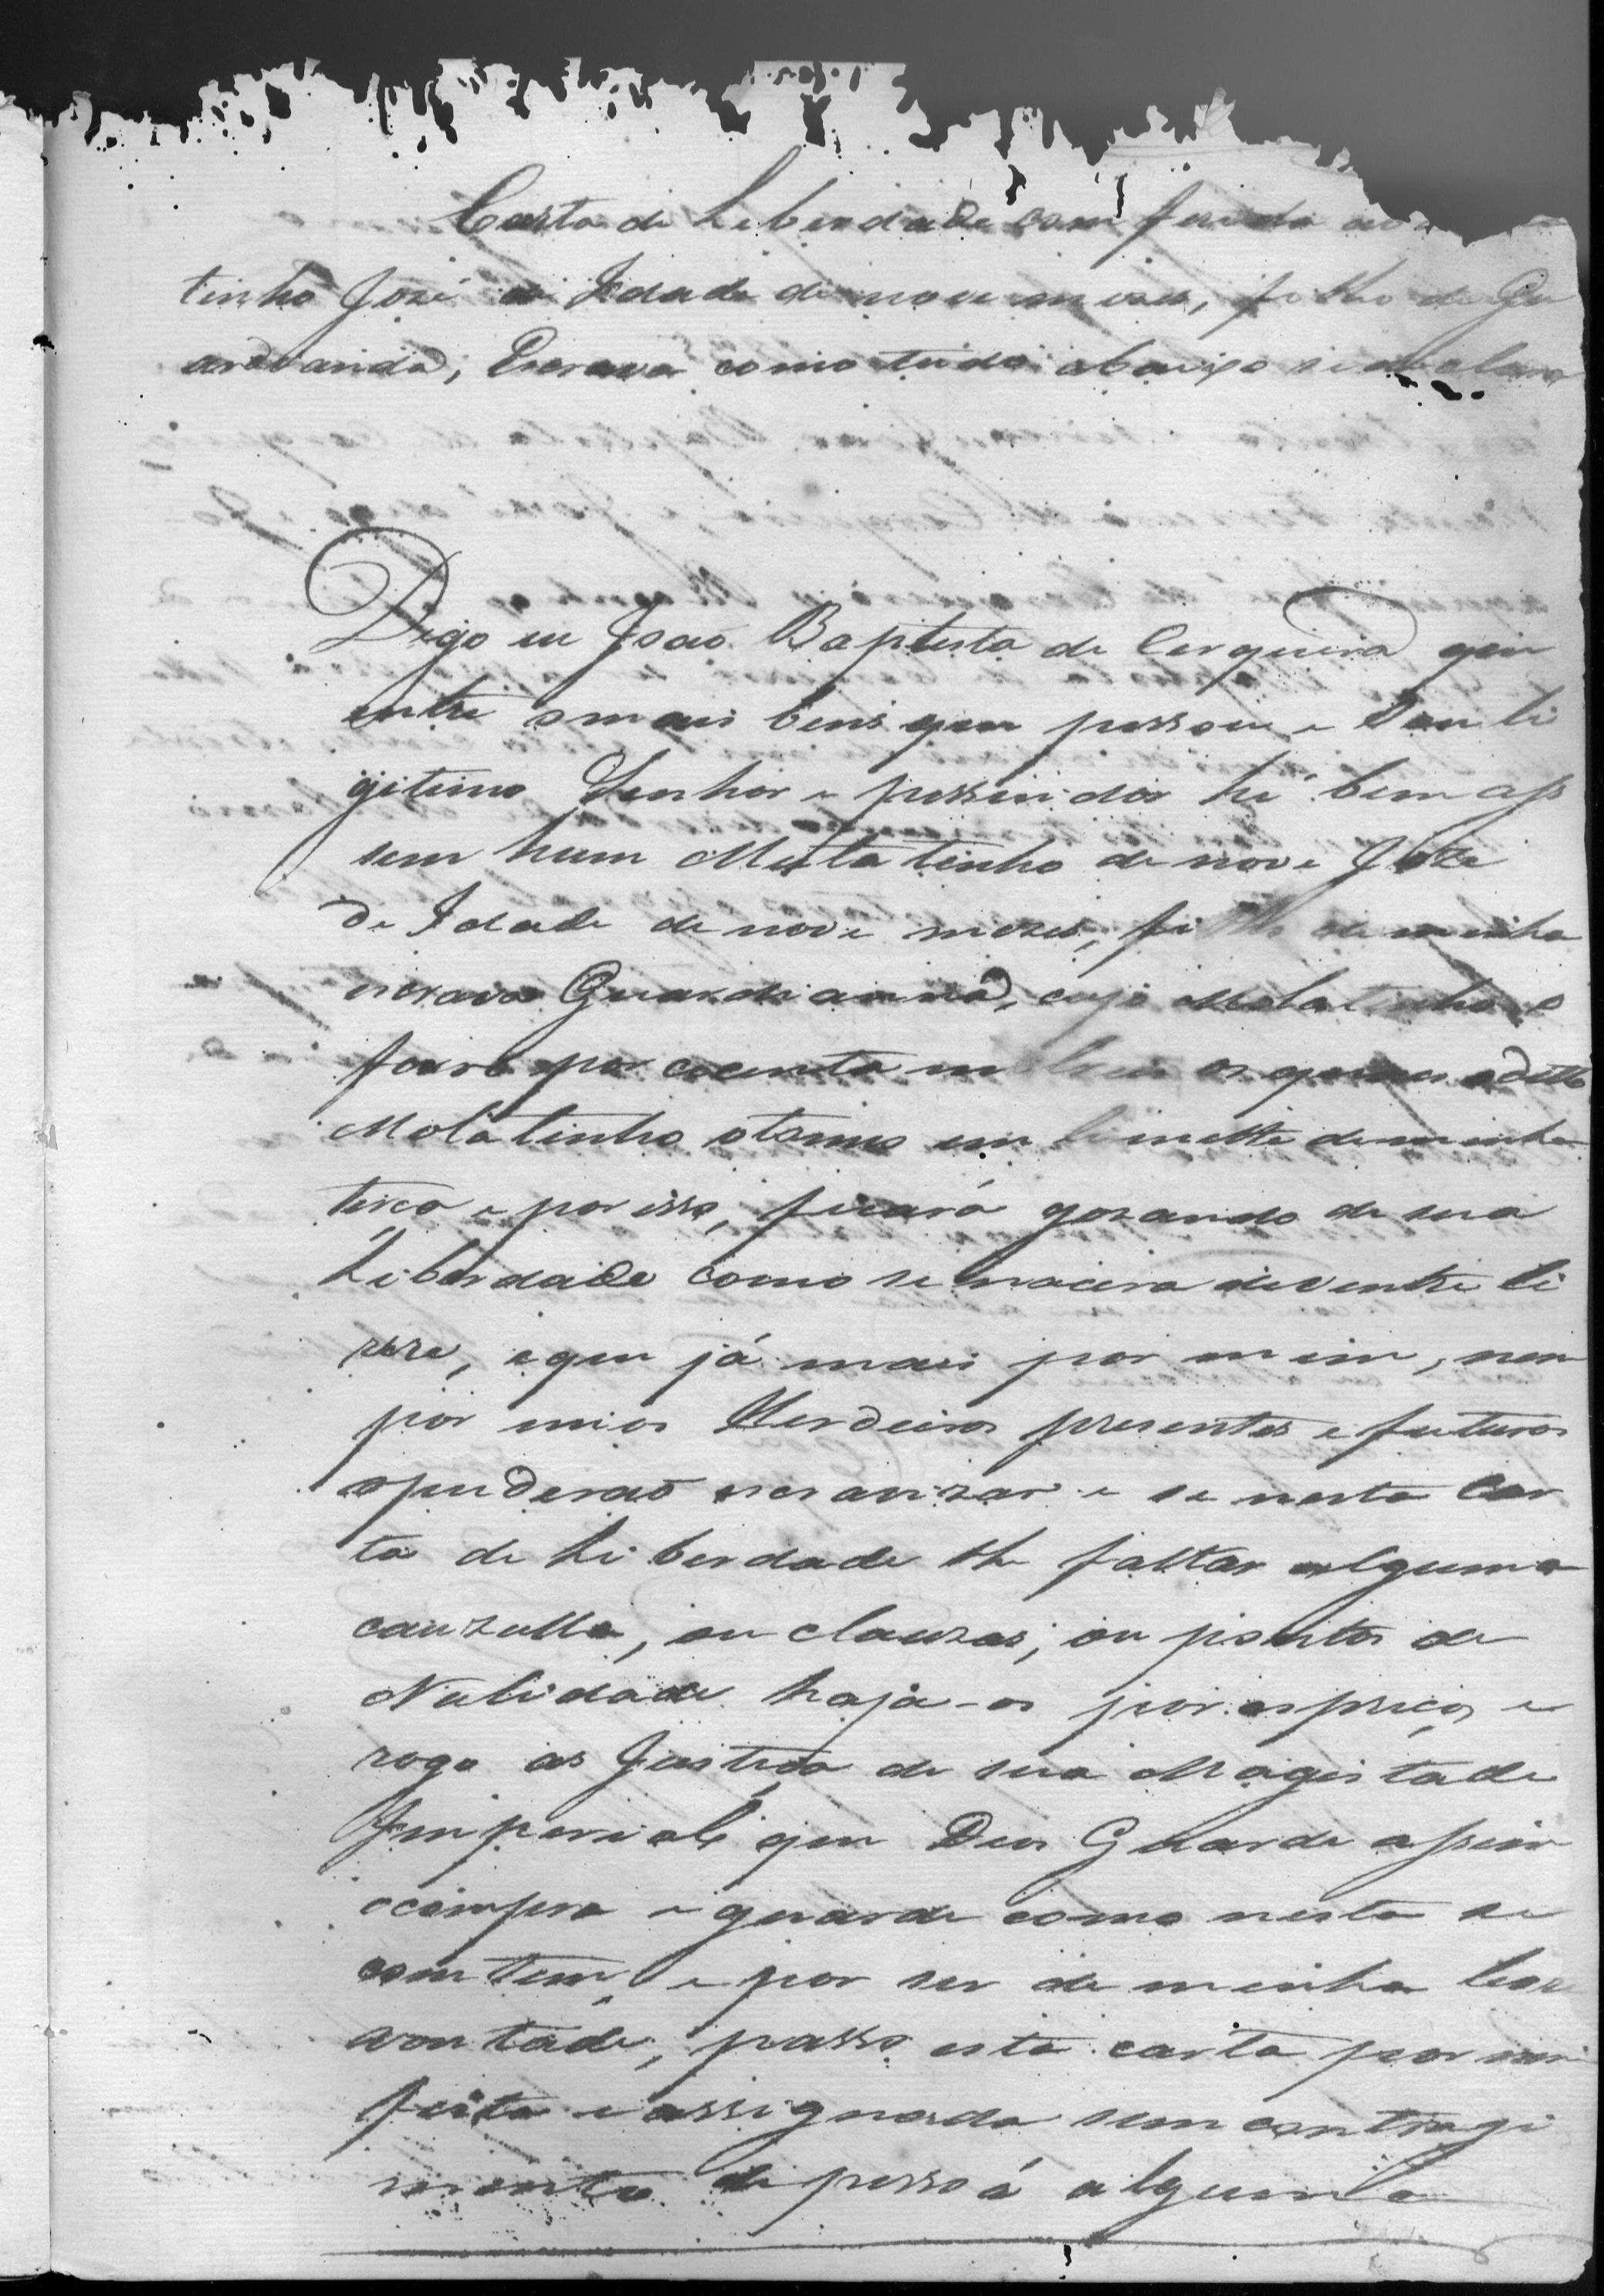 Carta de Liberdade comferida
tinho José de Idade de nove mezes, filho de Gu
ardianna, Escrava como tudo abaixo se declara
Digo eu Joaõ Baptista de Cerqueira que
entre os mais bens que possoeu e Sou li
gitimo Senhor e possuidor hé bem aß
sem hum Mulatinho de nome José
de Idade de nove mezes, filho de minha
escrava Guardianna, cujo Molatinho o
forro por coarenta mil reis os quaes o ditto
Molatinho o tomo em minha
terça e por isso, ficará gozando de sua
Liberdade como se nacera de ventre li
vre, e que já mais por mim, nem
por meos Herdeiros presentes e futuros
o puderaõ escravizar e se nesta Car
ta de Liberdade lhe faltar alguma
cauzulla, ou clauzas, ou pontos de
Nulidade haja-os por espreços e
rogo as Justiça de sua Magestade
Imperial que Deos Guarde aßim
o compra e guarde como nesta se
comtem, e por ser de minha livre
vontade, passo esta carta por mim
feita e assignada sem contragi
mento de pessoá alguma